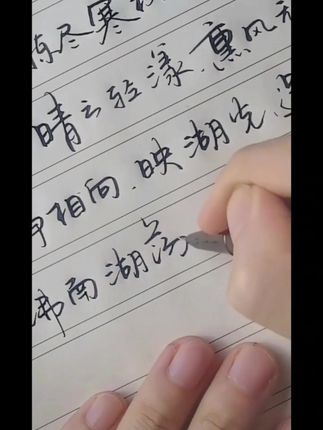 尽寒
晴云轻漾,熏风
相向,映湖光,
南湖